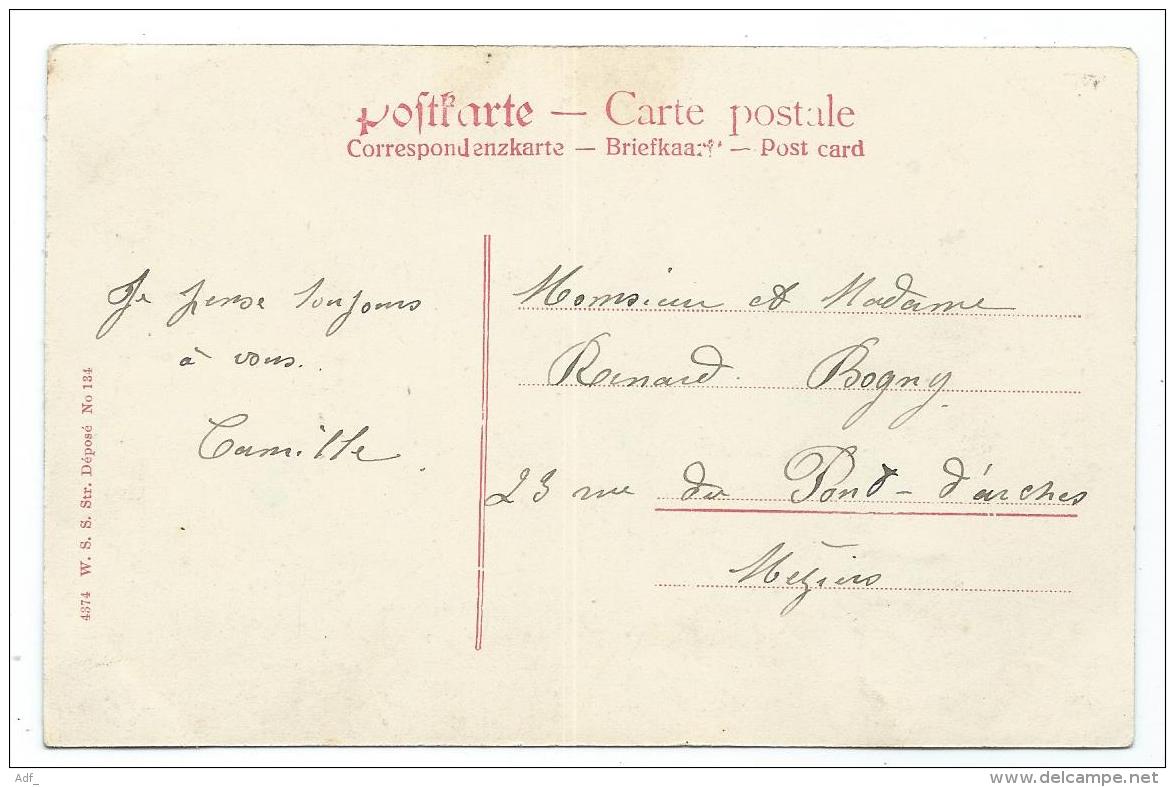 Postkarte — Carte postale
Correspondenzkarte — Briefkaart — Post card
Je pense toujours
à vous.
Camille
Monsieur et Madame
Renard Bogny
23 rue du Pont-d'arches
Mézières
4374 W. S. S. Str. Déposé No 134
Adf_
www.delcampe.net